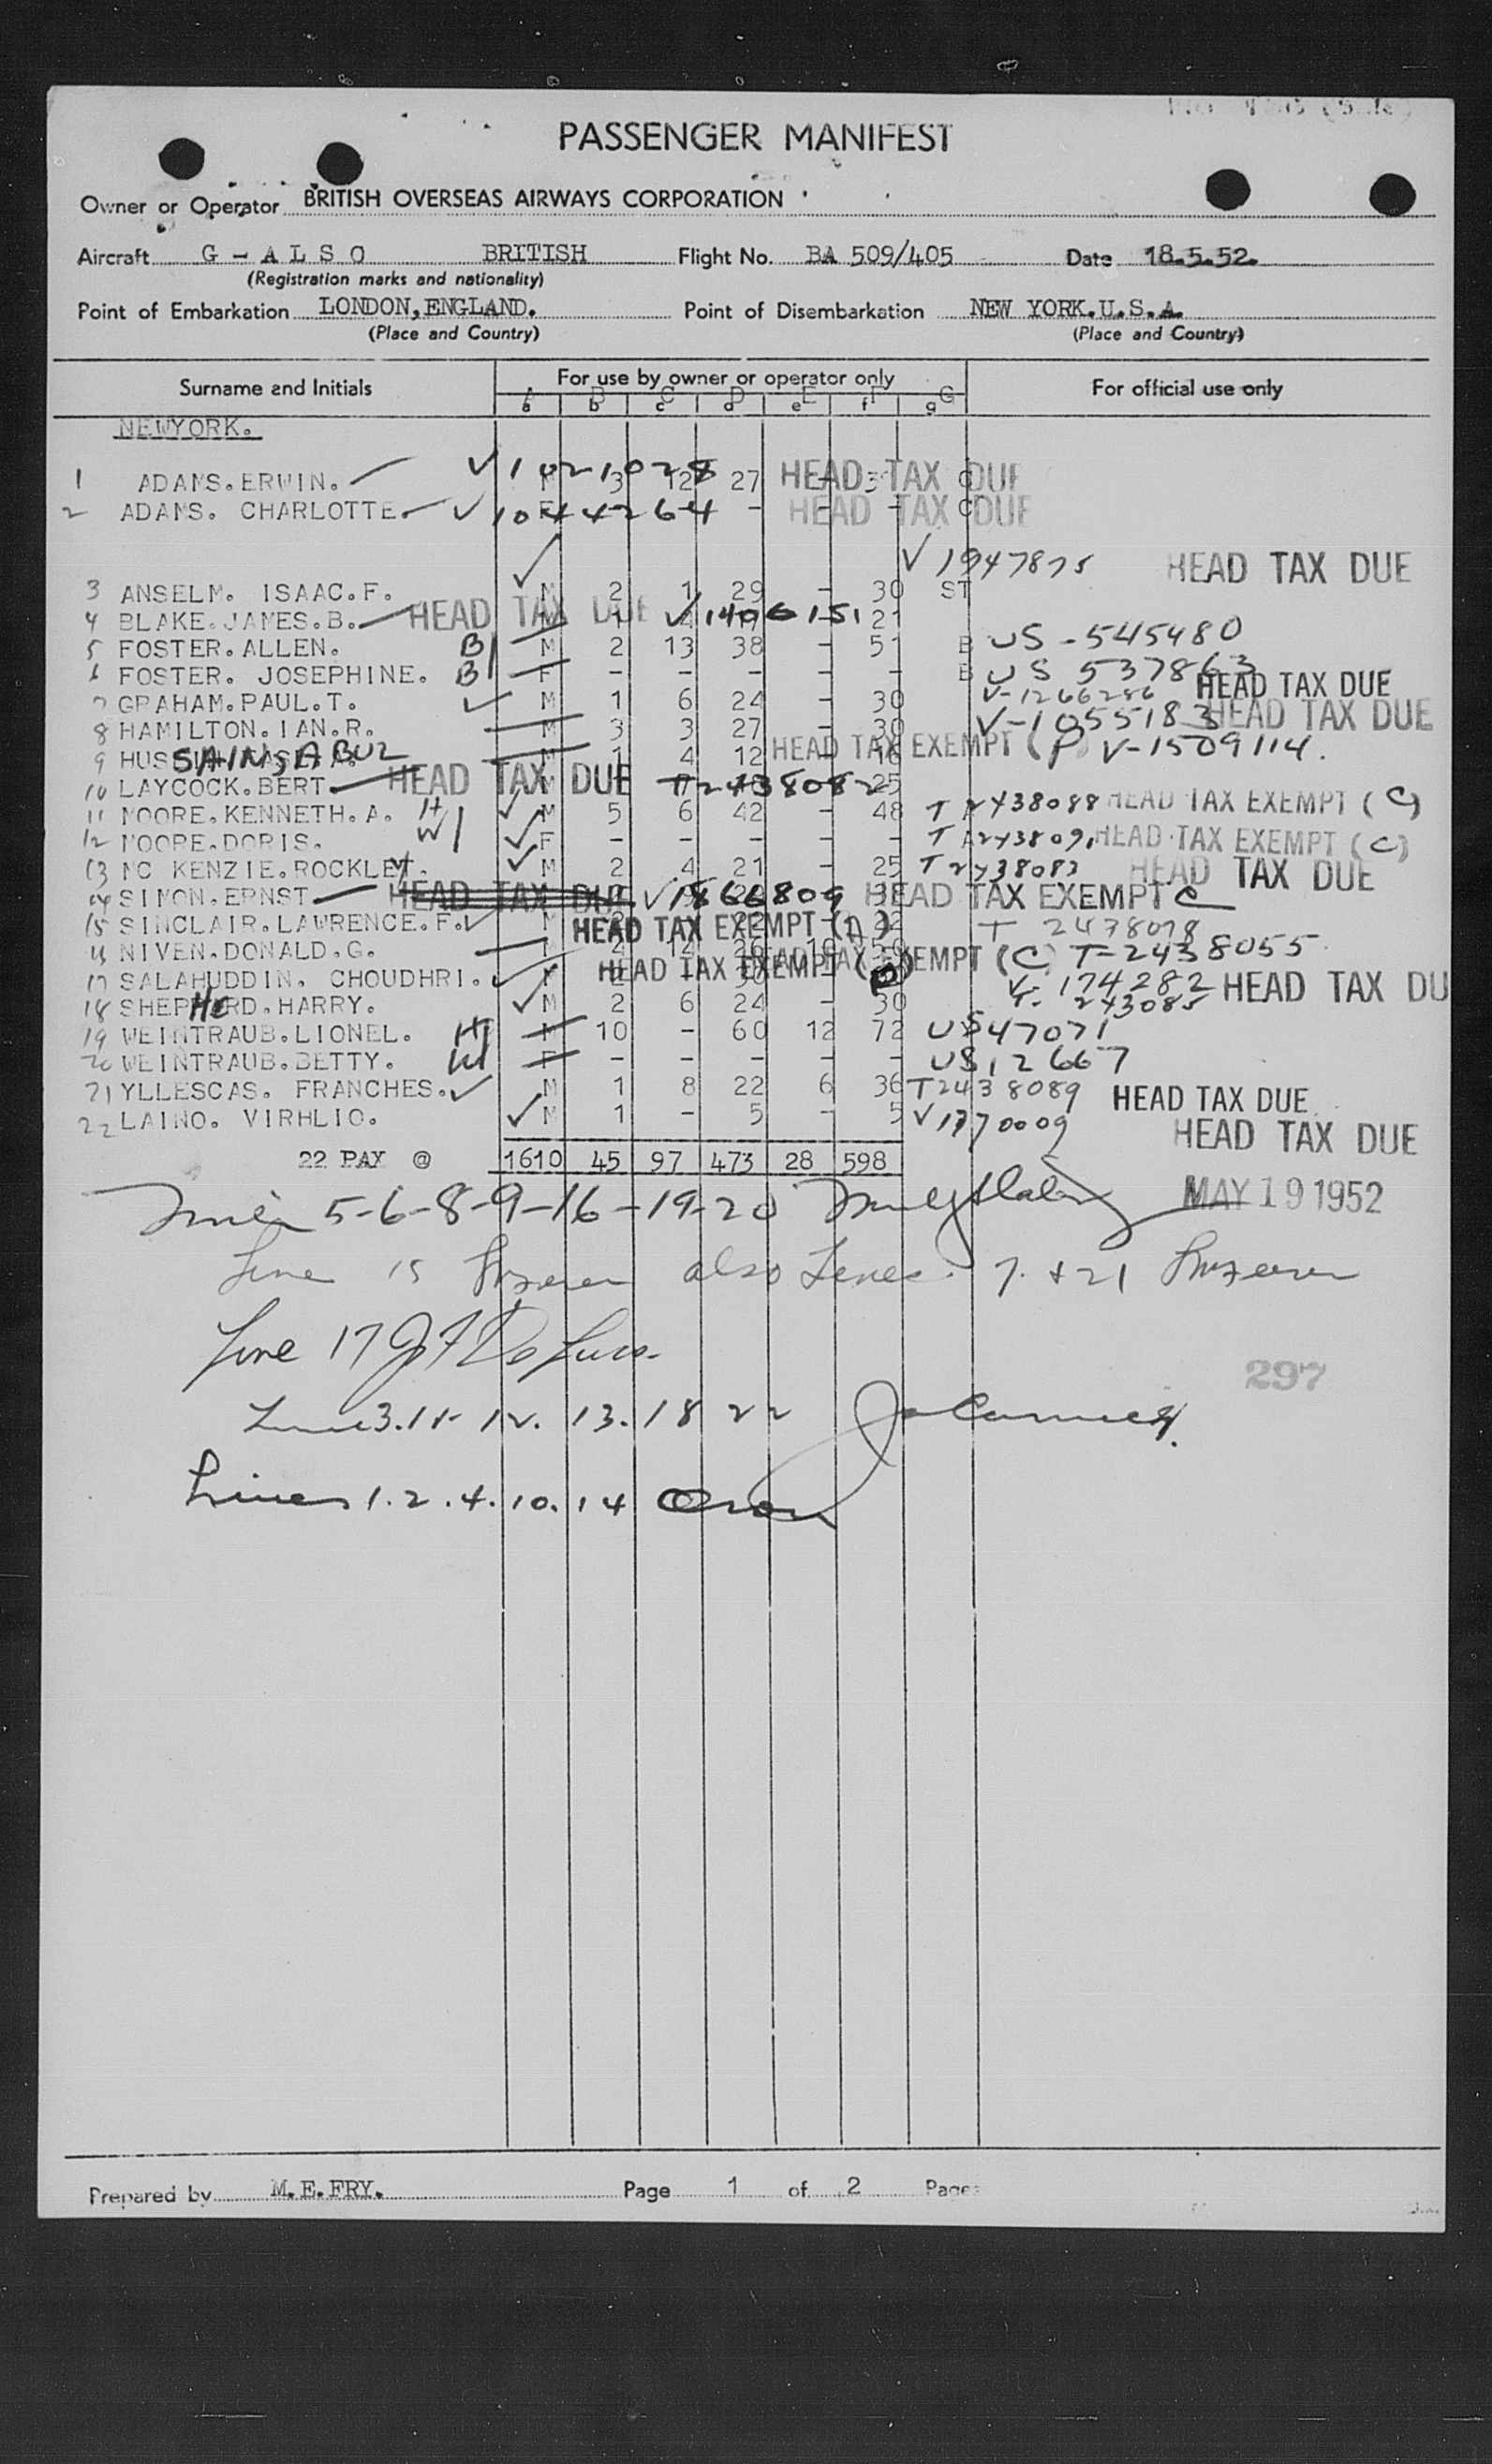 PASSENGER MANIFEST
Owner or Operator BRITISH OVERSEAS AIRWAYS CORPORATION
Aircraft G - A L S O BRITISH Flight No. BA 509/405 Date 18.5.52.
(Registration marks and nationality)
Point of Embarkation LONDON, ENGLAND. Point of Disembarkation NEW YORK.U.S.A.
(Place and Country) (Place and Country)
Surname and Initials For use by owner or operator only For official use only
A B C D E F G
a b c d e f g
NEWYORK.
1 ADAMS.ERWIN. V1021028 M 3 12 27 - HEAD TAX DUE
2 ADAMS. CHARLOTTE. V1044264 F - - HEAD TAX DUE
V1947875 HEAD TAX DUE
3 ANSELM. ISAAC.F. M 2 1 29 - 30 ST
4 BLAKE.JAMES.B. HEAD TAX DUE V1406151 21
5 FOSTER.ALLEN. B M 2 13 38 - 51 B US-545480
6 FOSTER. JOSEPHINE. B F - - - - - B US 537863
7 GRAHAM.PAUL.T. M 1 6 24 - 30 V-1266286 HEAD TAX DUE
8 HAMILTON.IAN.R. M 3 3 27 - 30 V-1055183 HEAD TAX DUE
9 HUSSAIN,ABUL M 1 4 12 16 HEAD TAX EXEMPT (P) V-1509114.
10 LAYCOCK.BERT HEAD TAX DUE T2438082 25
11 MOORE.KENNETH.A. H M 5 6 42 - 48 T 2438088 HEAD TAX EXEMPT (C)
12 MOORE.DORIS. W F - - - - - T 243809, HEAD TAX EXEMPT (C)
13 MC KENZIE.ROCKLEY. M 2 4 21 - 25 T 2438083 HEAD TAX DUE
14 SIMON.ERNST HEAD TAX DUE V1866809 HEAD TAX EXEMPT C
15 SINCLAIR.LAWRENCE.F. M HEAD TAX EXEMPT T 2438078
16 NIVEN.DONALD.G. HEAD TAX EXEMPT (C) T-2438055
17 SALAHUDDIN. CHOUDHRI. HEAD TAX EXEMPT V-174282
18 SHEPHERD.HARRY. M 2 6 24 - 30 T- 243085 HEAD TAX DU
19 WEINTRAUB.LIONEL. H M 10 - 60 12 72 US47071
20 WEINTRAUB.BETTY. W F - - - - - US12667
21 YLLESCAS. FRANCHES. M 1 8 22 6 36 T2438089 HEAD TAX DUE
22 LAINO. VIRHLIO. M 1 - 5 - 5 V1770009
HEAD TAX DUE
22 PAX @ 1610 45 97 473 28 598
5-6-8-9-16-19-20 MAY 19 1952
Line 15 also Lines 7. + 21
Line 17
297
Lines 3.11-12.13.18 22
Lines 1.2.4.10.14
Prepared by M.E.FRY. Page 1 of 2 Pages